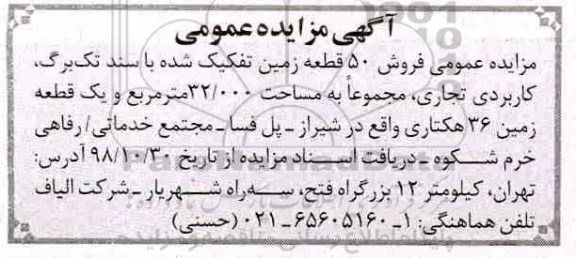 آگهی مزایده عمومی
مزایده عمومی فروش ۵۰ قطعه زمین تفکیک شده با سند تک‌برگ،
کاربردی تجاری، مجموعاً به مساحت ۳۲/۰۰۰مترمربع و یک قطعه
زمین ۳۶ هکتاری واقع در شیراز ـ پل فسا ـ مجتمع خدماتی/ رفاهی
خرم شکوه ـ دریافت اسناد مزایده از تاریخ ۹۸/۱۰/۳۰ آدرس:
تهران، کیلومتر ۱۲ بزرگراه فتح، سه‌راه شهریار ـ شرکت الیاف
تلفن هماهنگی: ۱ـ ۶۵۶۰۵۱۶۰ ـ ۰۲۱ (حسنی)